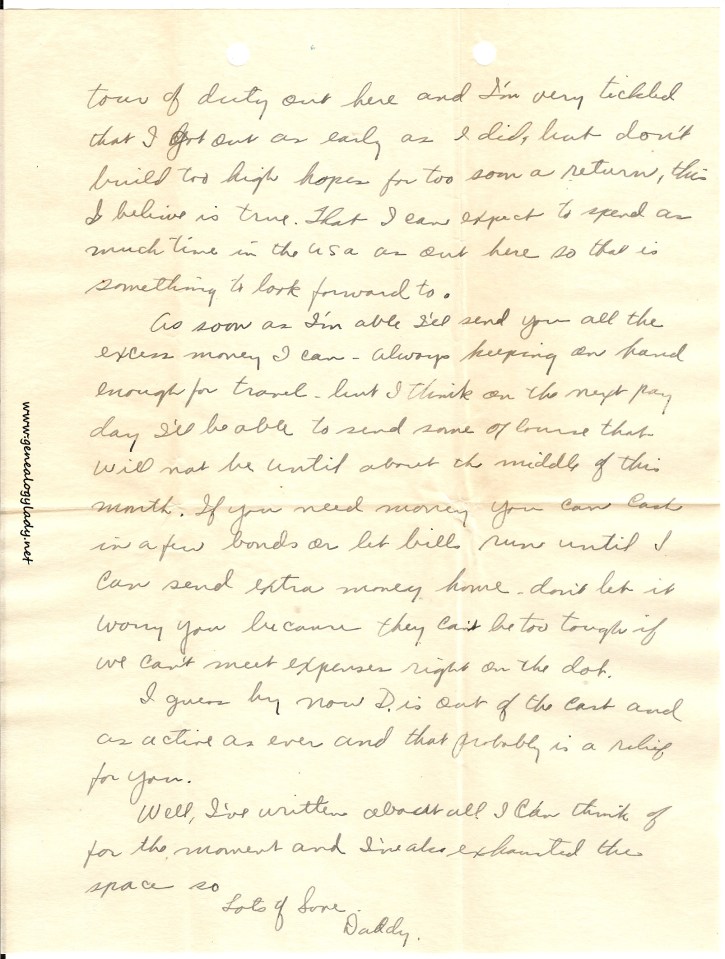 tour of duty out here and I'm very tickled
that I got out as early as I did, but don't
build too high hopes for too soon a return, this
I believe is true. That I can expect to spend as
much time in the USA as out here so that is
something to look forward to.
As soon as I'm able I'll send you all the
excess money I can - always keeping on hand
enough for travel - but I think on the next pay
day I'll be able to send some of course that
will not be until about the middle of this
month. If you need money you can cash
in a few bonds or let bills run until I
can send extra money home - don't let it
worry you because they can't be too tough if
we can't meet expenses right on the dot.
I guess by now D. is out of the cast and
as active as ever and that probably is a relief
for you.
Well, I've written about all I can think of
for the moment and I've also exhausted the
space so
Lots of Love.
Daddy.
www.genealogylady.net